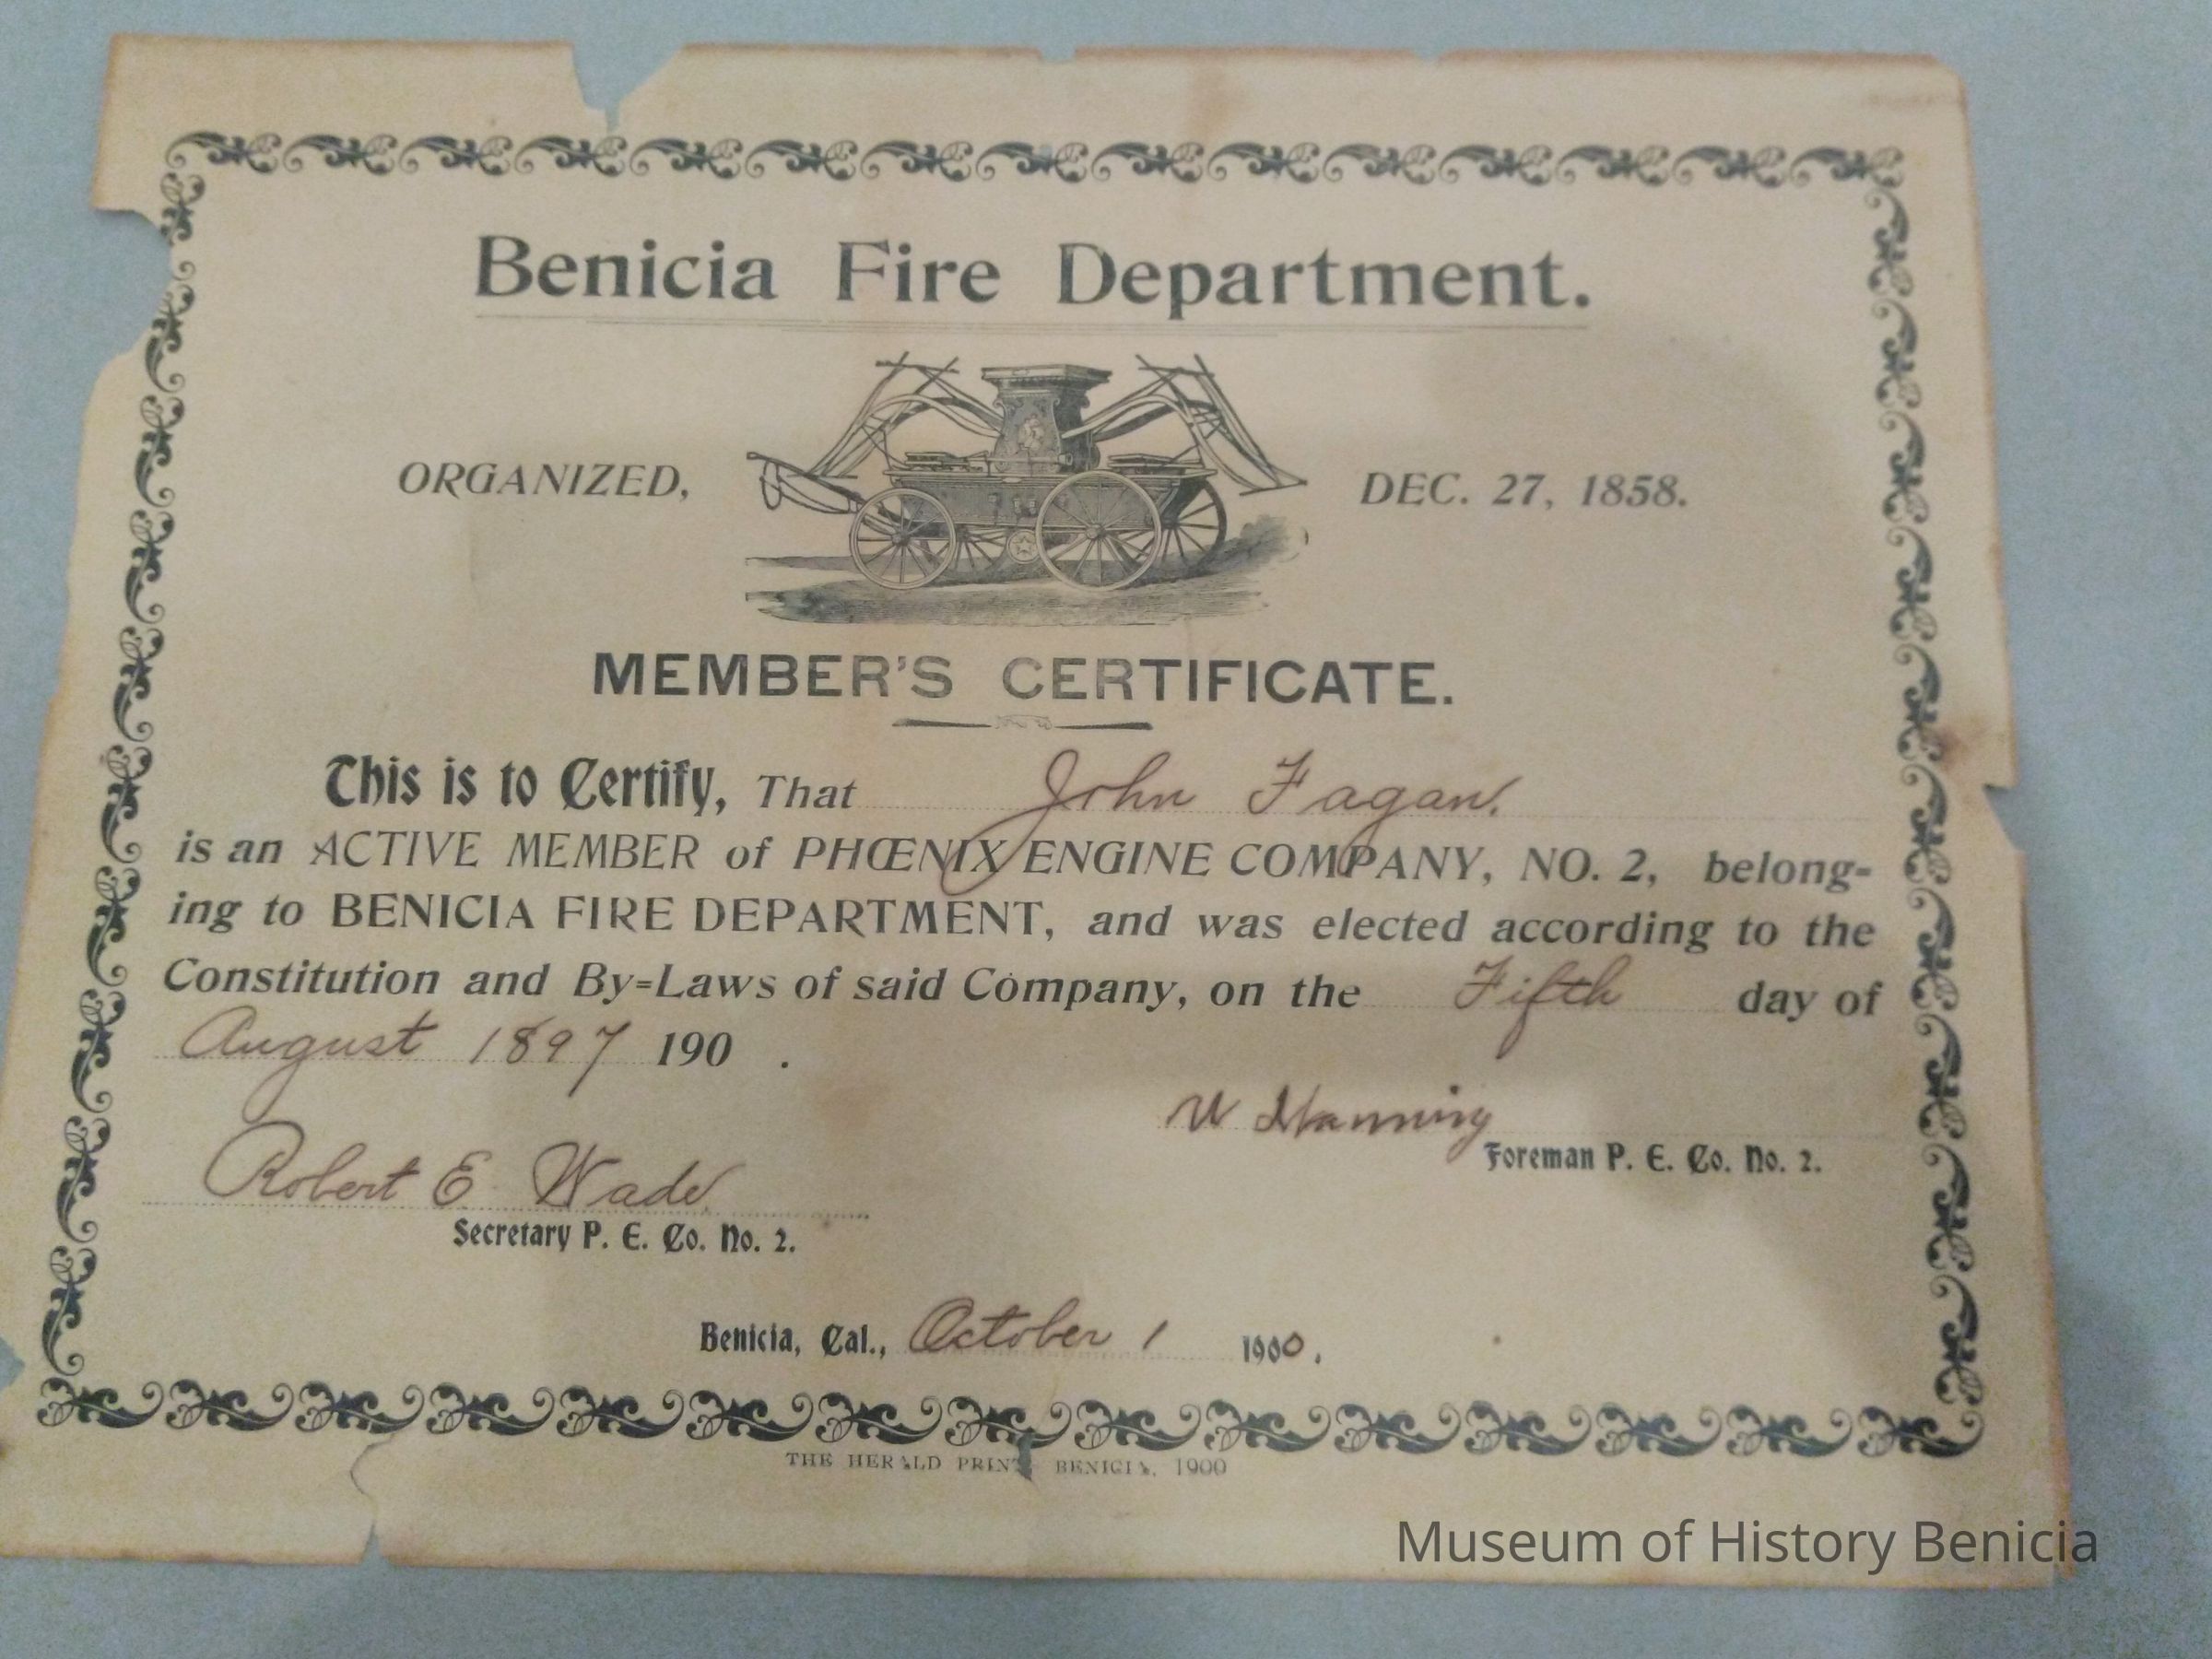 Benicia Fire Department.
ORGANIZED, DEC. 27, 1858.
MEMBER'S CERTIFICATE.
This is to Certify, That John Fagan.
is an ACTIVE MEMBER of PHŒNIX ENGINE COMPANY, NO. 2, belong-
ing to BENICIA FIRE DEPARTMENT, and was elected according to the
Constitution and By-Laws of said Company, on the Fifth day of
August 1897 190 .
W Manning
Foreman P. E. Co. No. 2.
Robert E. Wade,
Secretary P. E. Co. No. 2.
Benicia, Cal., October 1 1900.
THE HERALD PRINT BENICIA, 1900
Museum of History Benicia